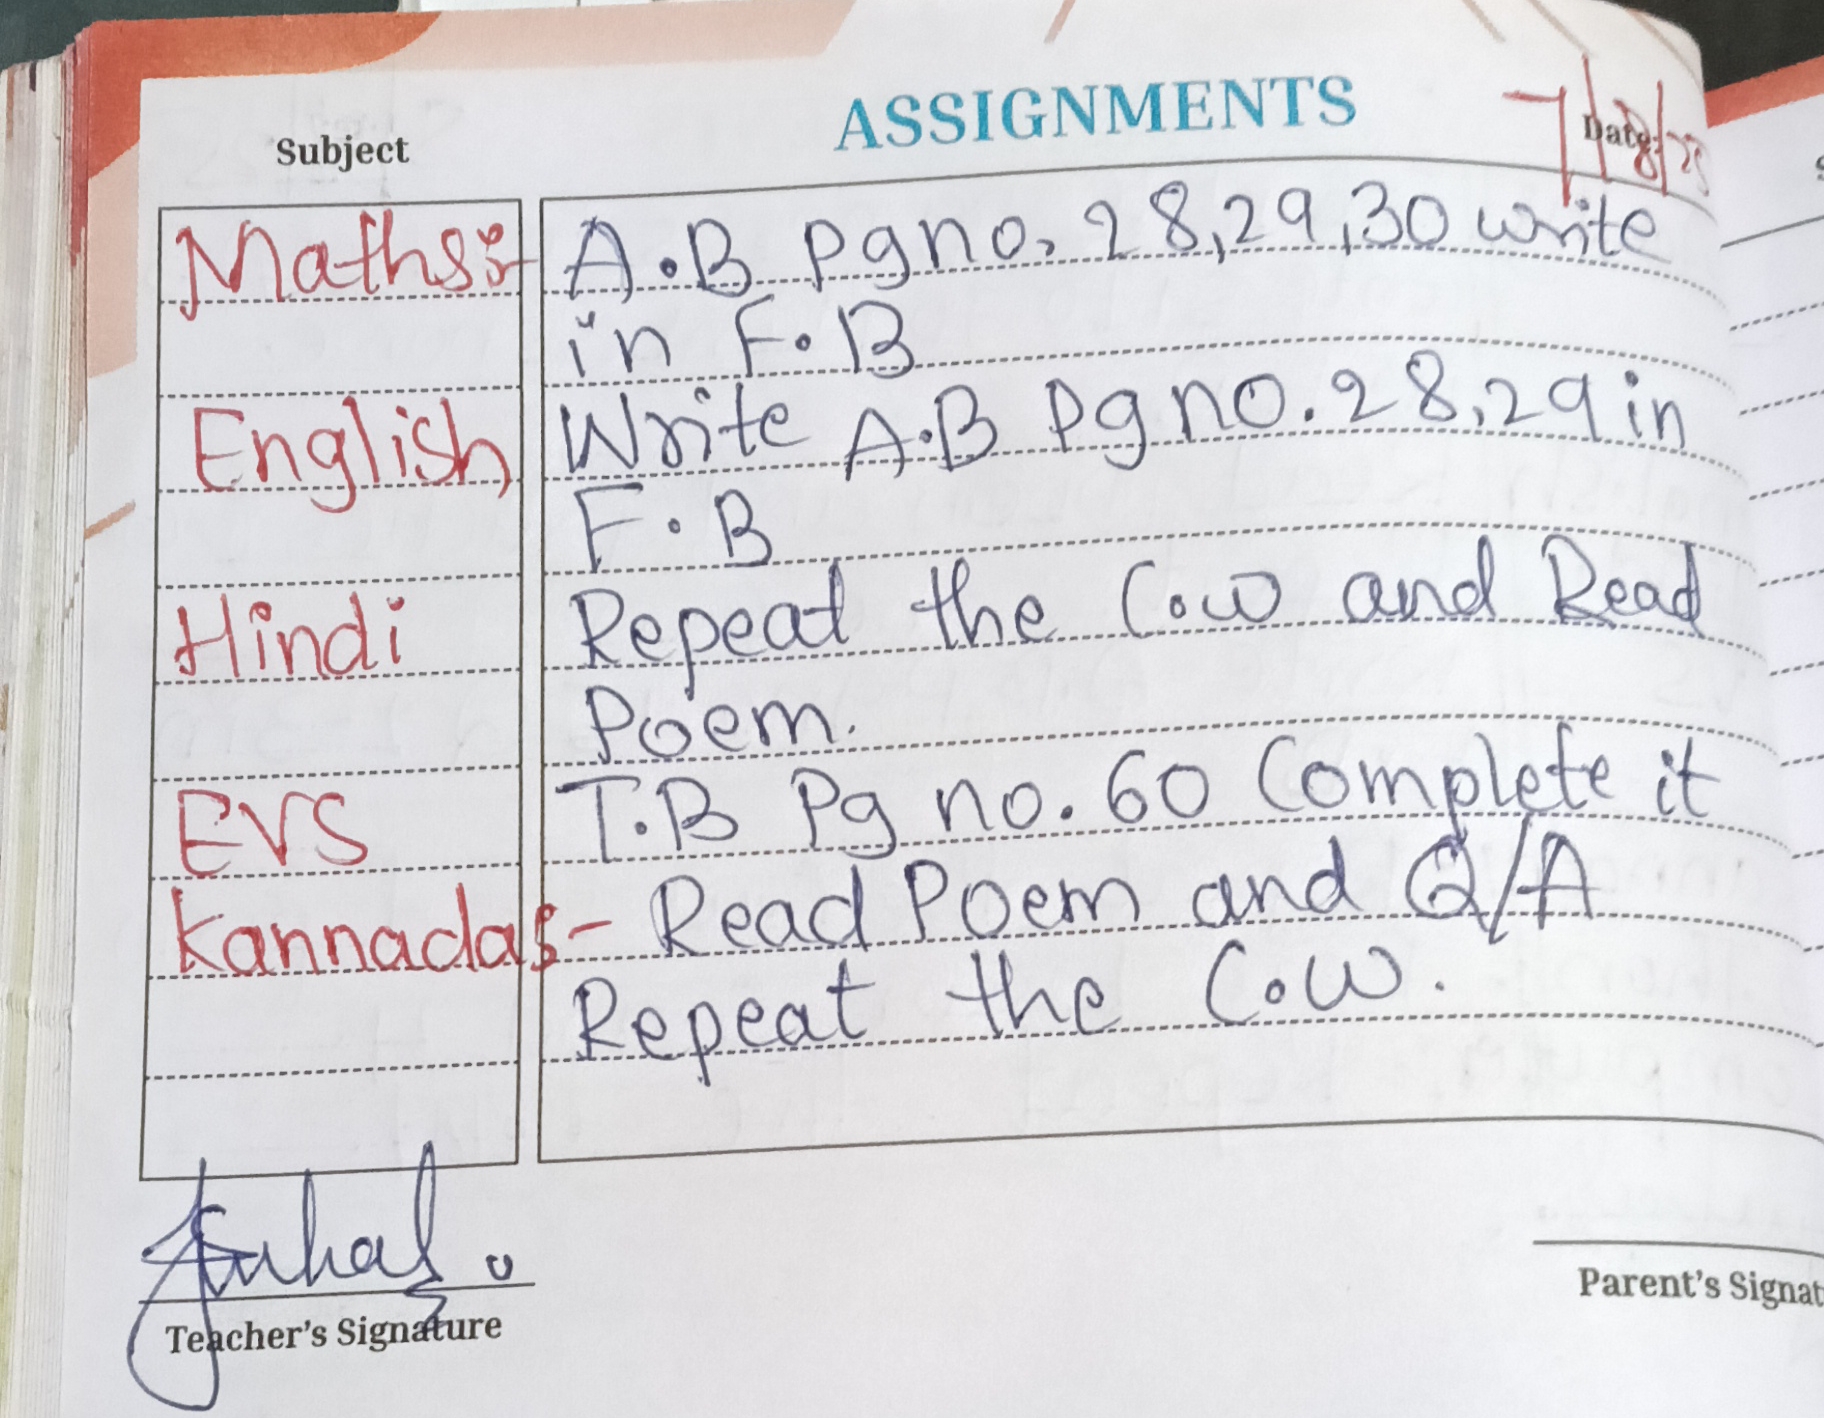 ASSIGNMENTS
Subject
Date: 7/8/25
Maths:- A.B Pg no. 28,29,30 write
in F.B
English Write A.B Pg no. 28,29 in
F.B
Hindi Repeat the C.W and Read
Poem.
EVS T.B Pg no. 60 Complete it
Kannada:- Read Poem and Q/A
Repeat the C.W.
Teacher's Signature
Parent's Signat